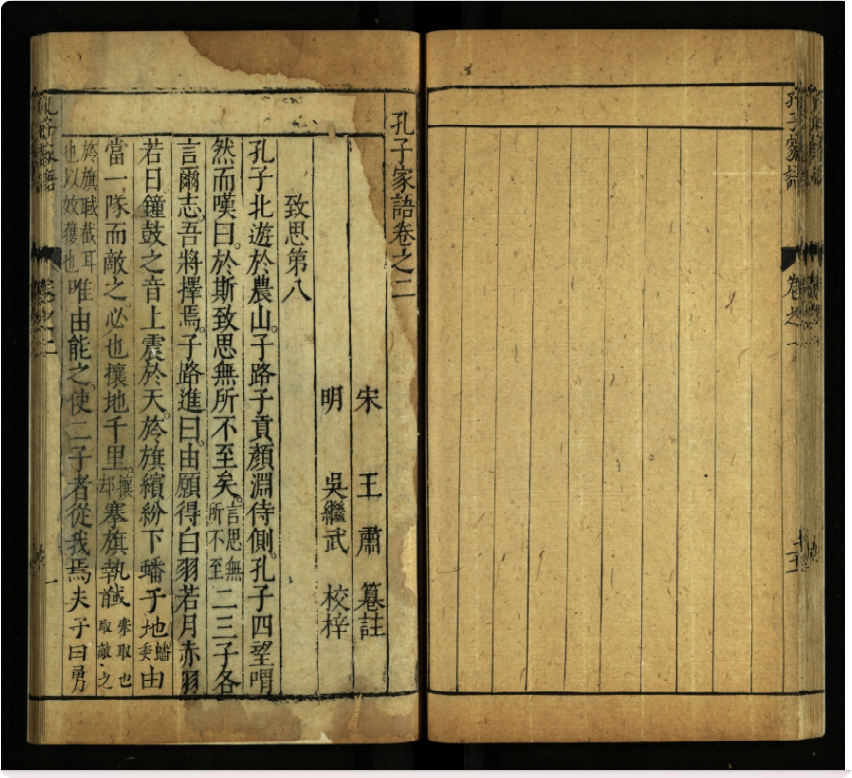 孔子家語
卷之一
孔子家語卷之二
宋 王肅 纂註
明 吳繼武 校梓
致思第八
孔子北遊於農山。子路子貢顏淵侍側。孔子四望喟
然而嘆曰。於斯致思無所不至矣。言思無所不至二三子各
言爾志。吾將擇焉。子路進曰。由願得白羽若月赤羽
若日鐘鼓之音上震於天。旍旗繽紛下蟠于地蟠委由
當一隊而敵之。必也攘地千里。攘却搴旗執馘搴取也取敵之
旍旗馘截耳也以效獲也唯由能之。使二子者從我焉夫子曰勇
孔子家語
卷之二
一